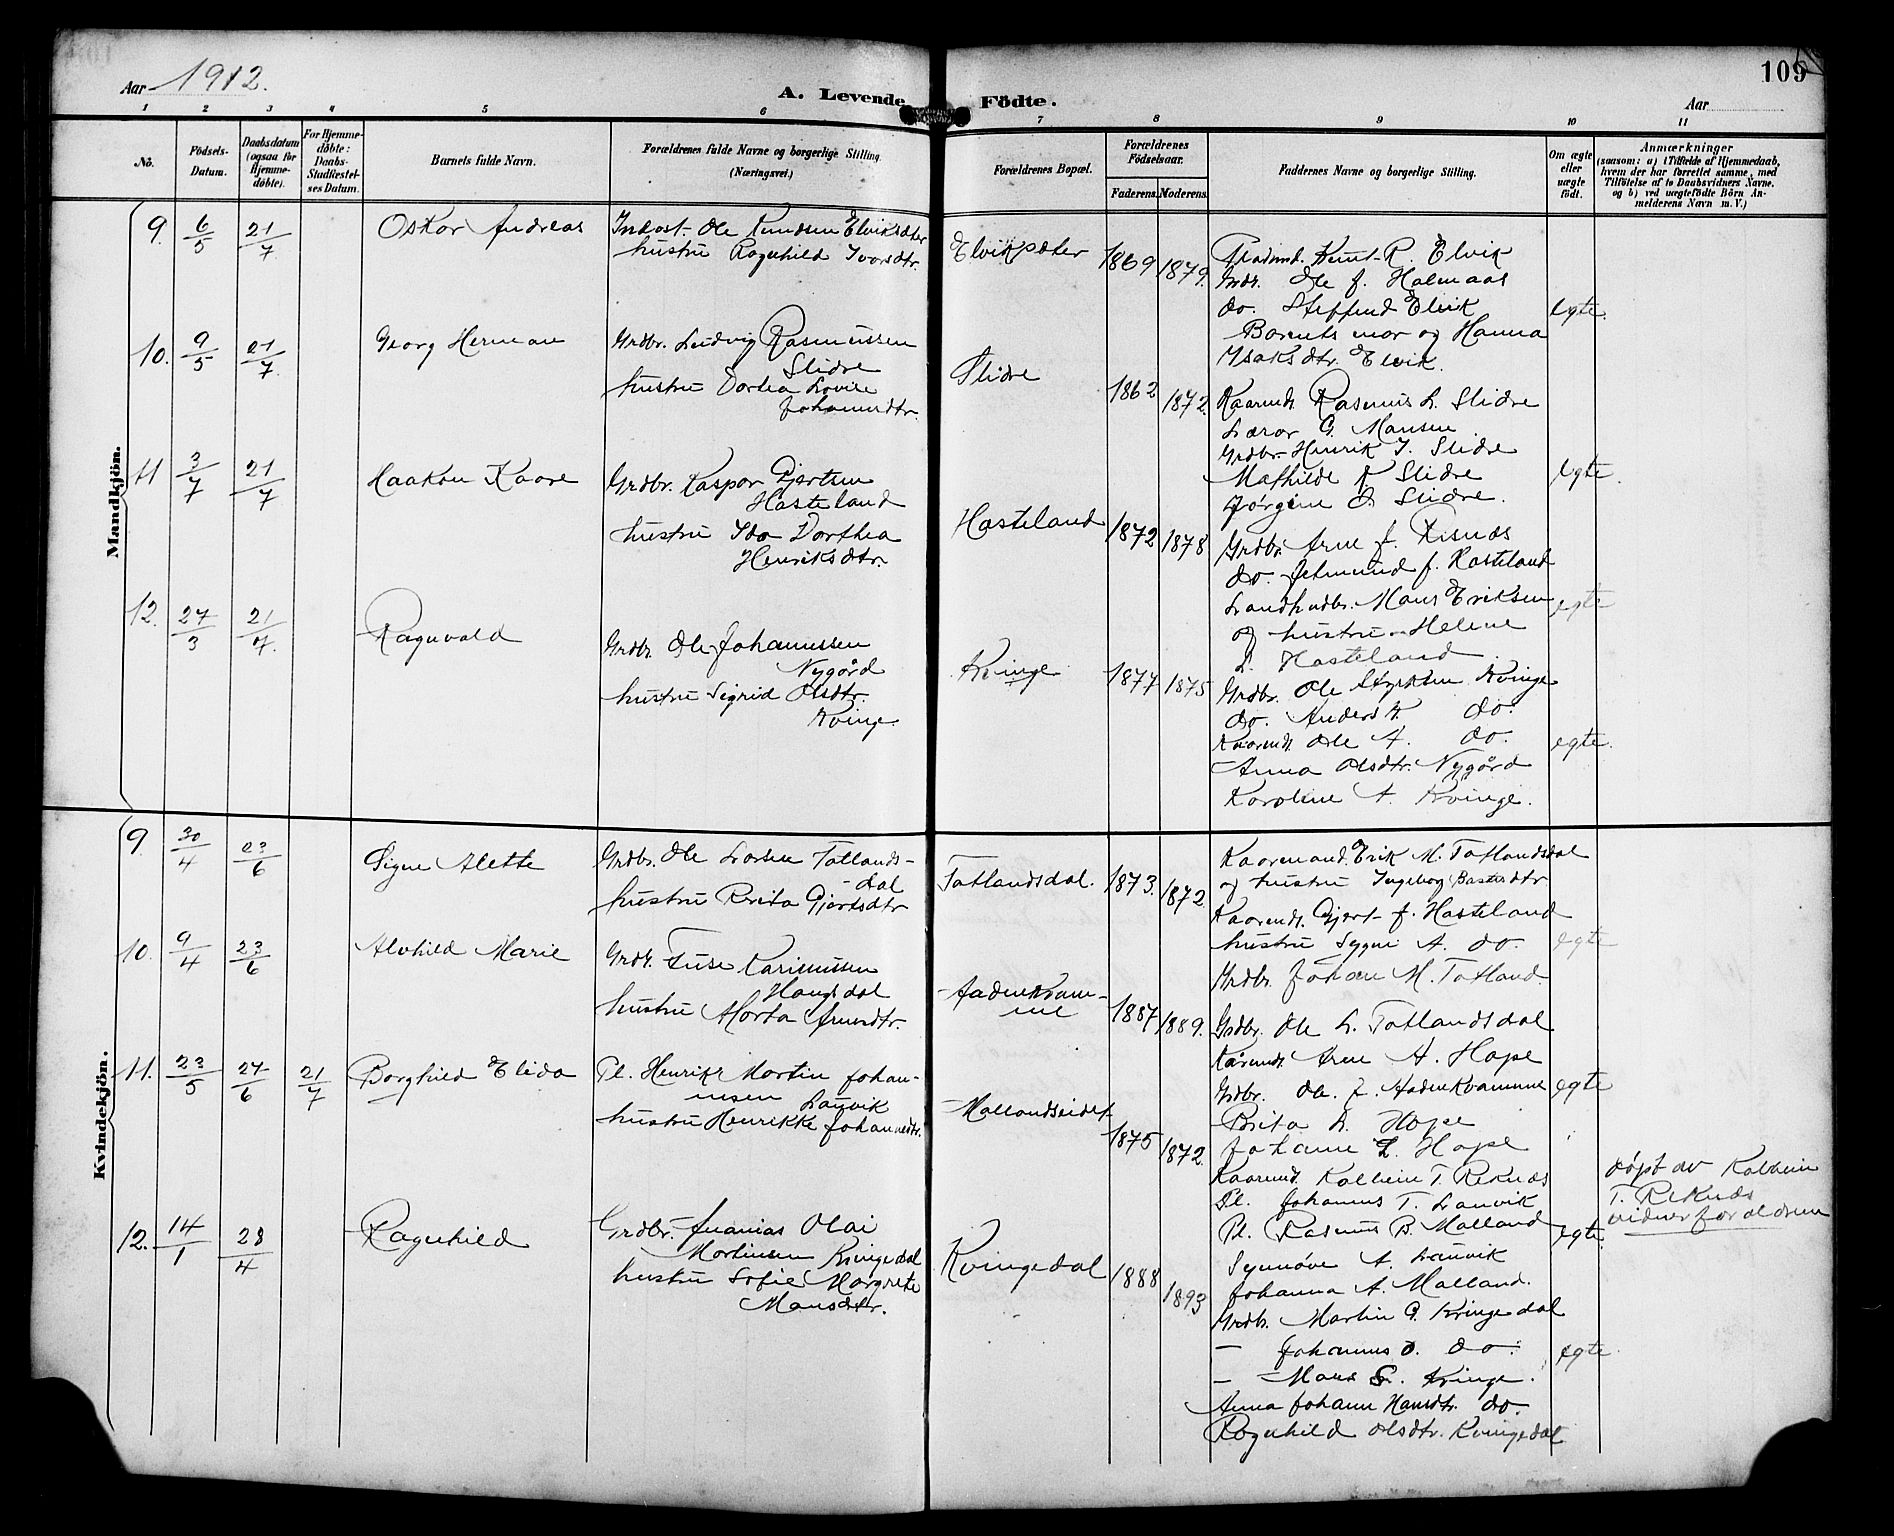 109
Aar 1912.
A. Levende Födte.
Aar
1 2 3 4 5 6 7 8 9 10 11
No.
Födsels-Datum.
Daabsdatum (ogsaa for Hjemme-döbte).
For Hjemme-döbte: Daabs-Stadfæstel-ses Datum.
Barnets fulde Navn.
Forældrenes fulde Navne og borgerlige Stilling. (Næringsvei.)
Forældrenes Bopæl.
Forældrenes Födselsaar.
Faderens. Moderens.
Faddernes Navne og borgerlige Stilling.
Om ægte eller uægte födt.
Anmærkninger
(saasom: a) i Tilfælde af Hjemmedaab,
hvem der har forrettet samme, med
Tilföielse af to Daabsvidners Navne,
og b) ved uægtefödte Börn An-
melderens Navn m. V.)
Mandkjön.
9. 6/5 21/7 Oskar Andreas
Ole Knudsen Elviksæter
hustru Ragnhild Ivarsdtr.
Elviksæter 1869 1879.
Knut R. Elvik
Grdbr. Ole J. Halmaas
do. Steffend Elvik
Barnets mor og Hanna
Isaksdtr. Elvik.
egte.
10. 9/5 21/7 Georg Herman
Grdbr. Ludvig Rasmussen
Slidre
hustru Dortea Lovise
Johannesdtr.
Slidre 1862 1872.
Kaarmd. Rasmus L. Slidre
Lærar G. Mansen
Grdbr. Henrik J. Slidre
Mathilde R. Slidre
Jørgine J. Slidre.
egte.
11 3/7 21/7 Haakon Kaare
Grdbr. Kaspar Gjertsen
Hasteland
hustru Ida Dorthea
Henriksdtr.
Hasteland 1872 1878
Grdbr. Arne J. Risnes
do. Jetmund J. Hasteland
Landhndbr. Mons Eriksen
og hustru Helene
L. Hasteland
egte
12. 27/3 21/4. Ragnvald
Grdbr. Ole Johannessen
Nygård
hustru Sigrid Olsdtr.
Kvinge.
Kvinge 1877 1875
Grdbr. Ole Styrksen Kvinge
do. Anders A. do.
Kaarmd. Ole A. do.
Anna Olsdtr. Nygård
Karoline A. Kvinge.
egte.
Kvindekjön.
9. 30/4 23/6 Signe Alette
Grdbr. Ole Larsen Tatlands-
dal
hustru Brita Gjertsdtr
Tatlandsdal. 1873. 1872.
Kaarmand. Erik M. Tatlandsdal
og hustru Ingeborg Bastesdtr
Kaarmd. Gjert J. Hasteland
hustru Sygni A. do.
Grdbr. Johan M. Tatland.
egte
10. 9/4 23/6 Alvhild Marie
Grdbr. Tuse Karinussen
Haugsdal
hustru Marta Arnesdtr.
Aadnekvam-
me 1887 1889.
Grdbr. Ole L. Tatlandsdal
Kårmd. Arne A. Hope
Grdbr. Ole J. Aadnekvamme
Brita L. Hope
Johanne L. Hope
egte
11. 23/5 24/6 21/7 Borghild Elida
Pl. Henrik Martin Johan-
nesen Lauvik
hustru Henrikke Johannesdtr.
Mallandseidet 1875 1872.
Kaarmd. Kolbein T. Reknes
Pl. Johannes T. Lauvik
Pl. Rasmus B. Malland
Synnøve A. Lauvik
Johanna A. Malland.
egte.
døpt av Kolbein
T. Reknes
vidner foraldrene
12. 14/1 28/4 Ragnhild
Grdbr. Ananias Olai
Martinsen Kvingedal
hustru Sofie Margrete
Monsdtr.
Kvingedal 1888 1893
Grdbr. Martin O. Kvingedal
— Johannes O. do.
— Mons S. Kvinge.
Anna Johanne Hansdtr. do.
Ragnhild Olsdtr. Kvingedal
egte.